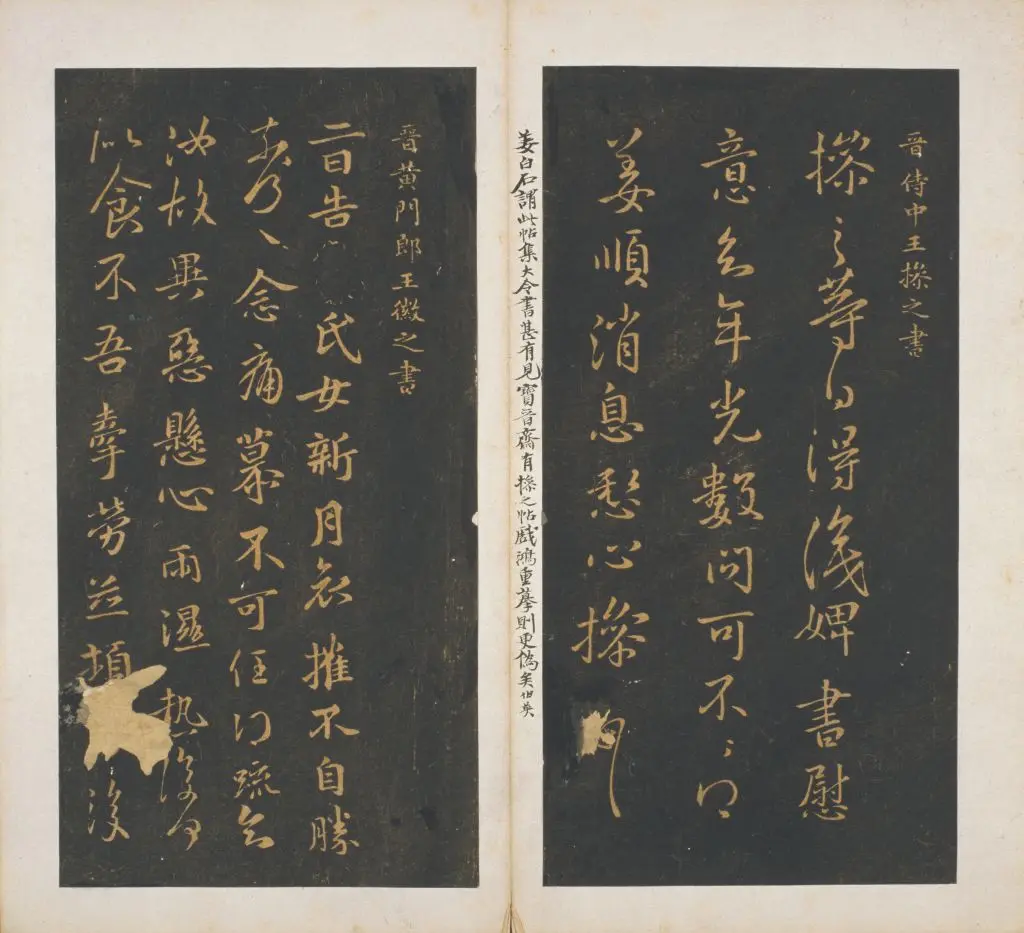 晉侍中王操之書
操之等白得識婢書慰
意知年光數問可不〻
姜順消息愁心操
姜白石謂此帖集大令書甚有見寶晉齋有操之帖戲鴻重摹則更偽矣伯英
晉黃門郎王徽之書
二日告 氏女新月哀摧不自勝
奈何〻念痛慕不可任得疏知
汝故異惡懸心雨濕熱復何
似食不吾牽勞並頓 復